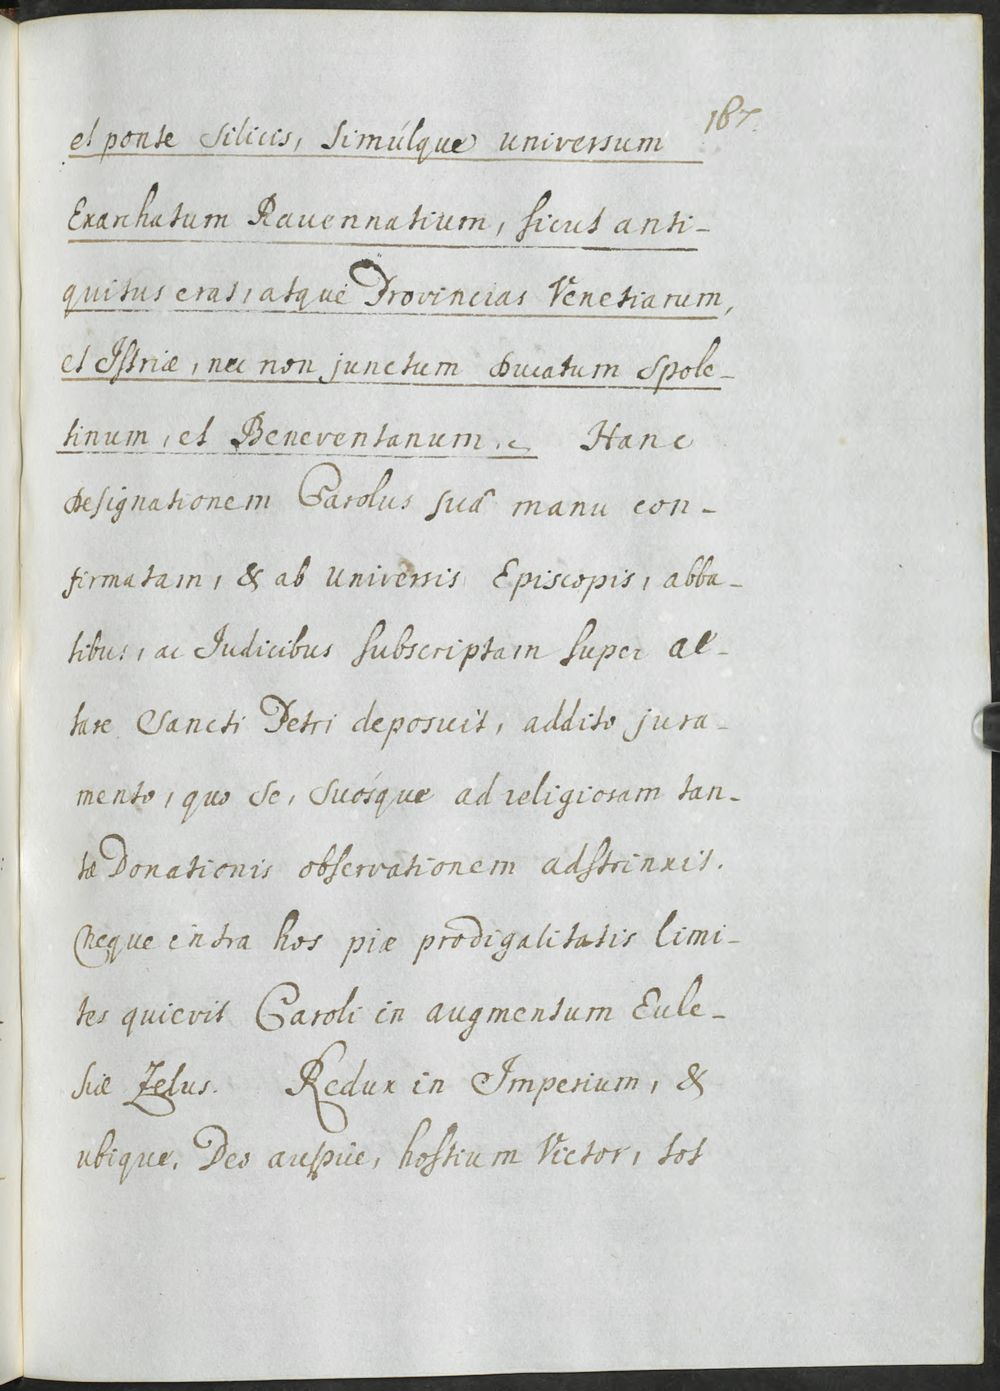 187.
et ponte Silicis, simúlque universum
Exarchatum Ravennatium, sicut anti-
quitus erat, atque Provincias Venetiarum,
et Istriæ, nec non junctum Ducatum Spole-
tinum, et Beneventanum. Hanc
designationem Carolus suâ manu con-
firmatam, & ab universis Episcopis, abba-
tibus, ac Iudicibus subscriptam super al-
tare Sancti Petri deposuit, addito jura-
mento, quo se, suósque ad religiosam tan-
tæ Donationis observationem adstrinxit.
Neque intra hos piæ prodigalitatis limi-
tes quievit Caroli in augmentum Eccle-
siæ Zelus. Redux in Imperium, &
ubique, Deo auspice, hostium Victor, tot